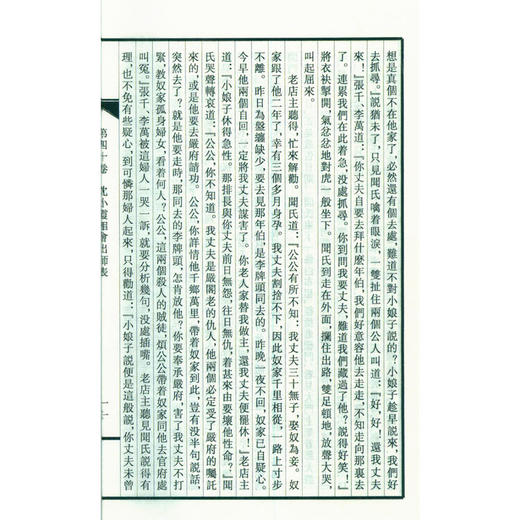 想是真個不在他家了,必然還有個去處,難道不對小娘子說的?小娘子趁早說來,我們好
去抓尋。」說猶未了,只見聞氏噙着眼淚,一雙扯住兩個公人叫道:「好,好!還我丈夫
來!」張千、李萬道:「你丈夫自要去拜什麼年伯,我們好意容他去走走,不知走向那裏去
了。連累我們在此着急,沒處抓尋。你到問我要丈夫,難道我們藏過了他?說得好笑!」
將衣袂掣開,氣忿忿地對虎一般坐下。聞氏到走在外面,攔住出路,雙足頓地,放聲大哭,
叫起屈來。
老店主聽得,忙來解勸。聞氏道:「公公有所不知:我丈夫三十無子,娶奴為妾。奴
家跟了他二年了,幸有三個多月身孕。我丈夫割捨不下,因此奴家千里相從,一路上寸步
不離。昨日為盤纏缺少,要去見那年伯,是李牌頭同去的。昨晚一夜不回,奴家已自疑心。
今早他兩個自回,一定將我丈夫謀害了。你老人家替我做主,還我丈夫便罷休!」老店主
道:「小娘子休得急性。那排長與你丈夫前日無怨,往日無仇,着甚來由要壞他性命?」聞
氏哭聲轉哀道:「公公,你不知道。我丈夫是嚴閣老的仇人,他兩個必定受了嚴府的囑託
來的,或是他要去嚴府請功。公公,你詳情他千鄉萬里,帶着奴家到此,豈有沒半句說話,
突然去了?就是他要走時,那同去的李牌頭,怎肯放他?你要奉承嚴府,害了我丈夫不打
緊,教奴家孤身婦女,看着何人?公公,這兩個殺人的賊徒,煩公公帶着奴家同他去官府處
叫冤。」張千、李萬被這婦人一哭一訴,就要分析幾句,沒處插嘴。老店主聽見聞氏說得有
理,也不免有些疑心,到可憐那婦人起來,只得勸道:「小娘子說便是這般說,你丈夫未曾
第四十卷 沈小霞相會出師表